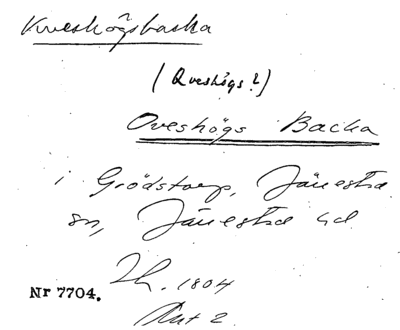 Kveshögsbacka
(Qveshögs?)
Oveshögs Backa
i Grödstorp, Järrestad
sn, Järrestad hd
Lh. 1804
Nr 7704.
Akt 2